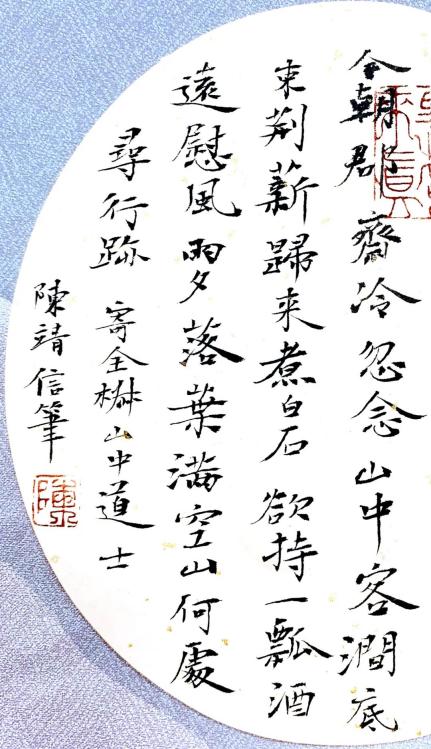 今朝郡齋冷忽念山中客澗底
束荆薪歸来煮白石欲持一瓢酒
遠慰風雨夕落葉滿空山何處
尋行跡 寄全椒山中道士
陳靖信筆
陳